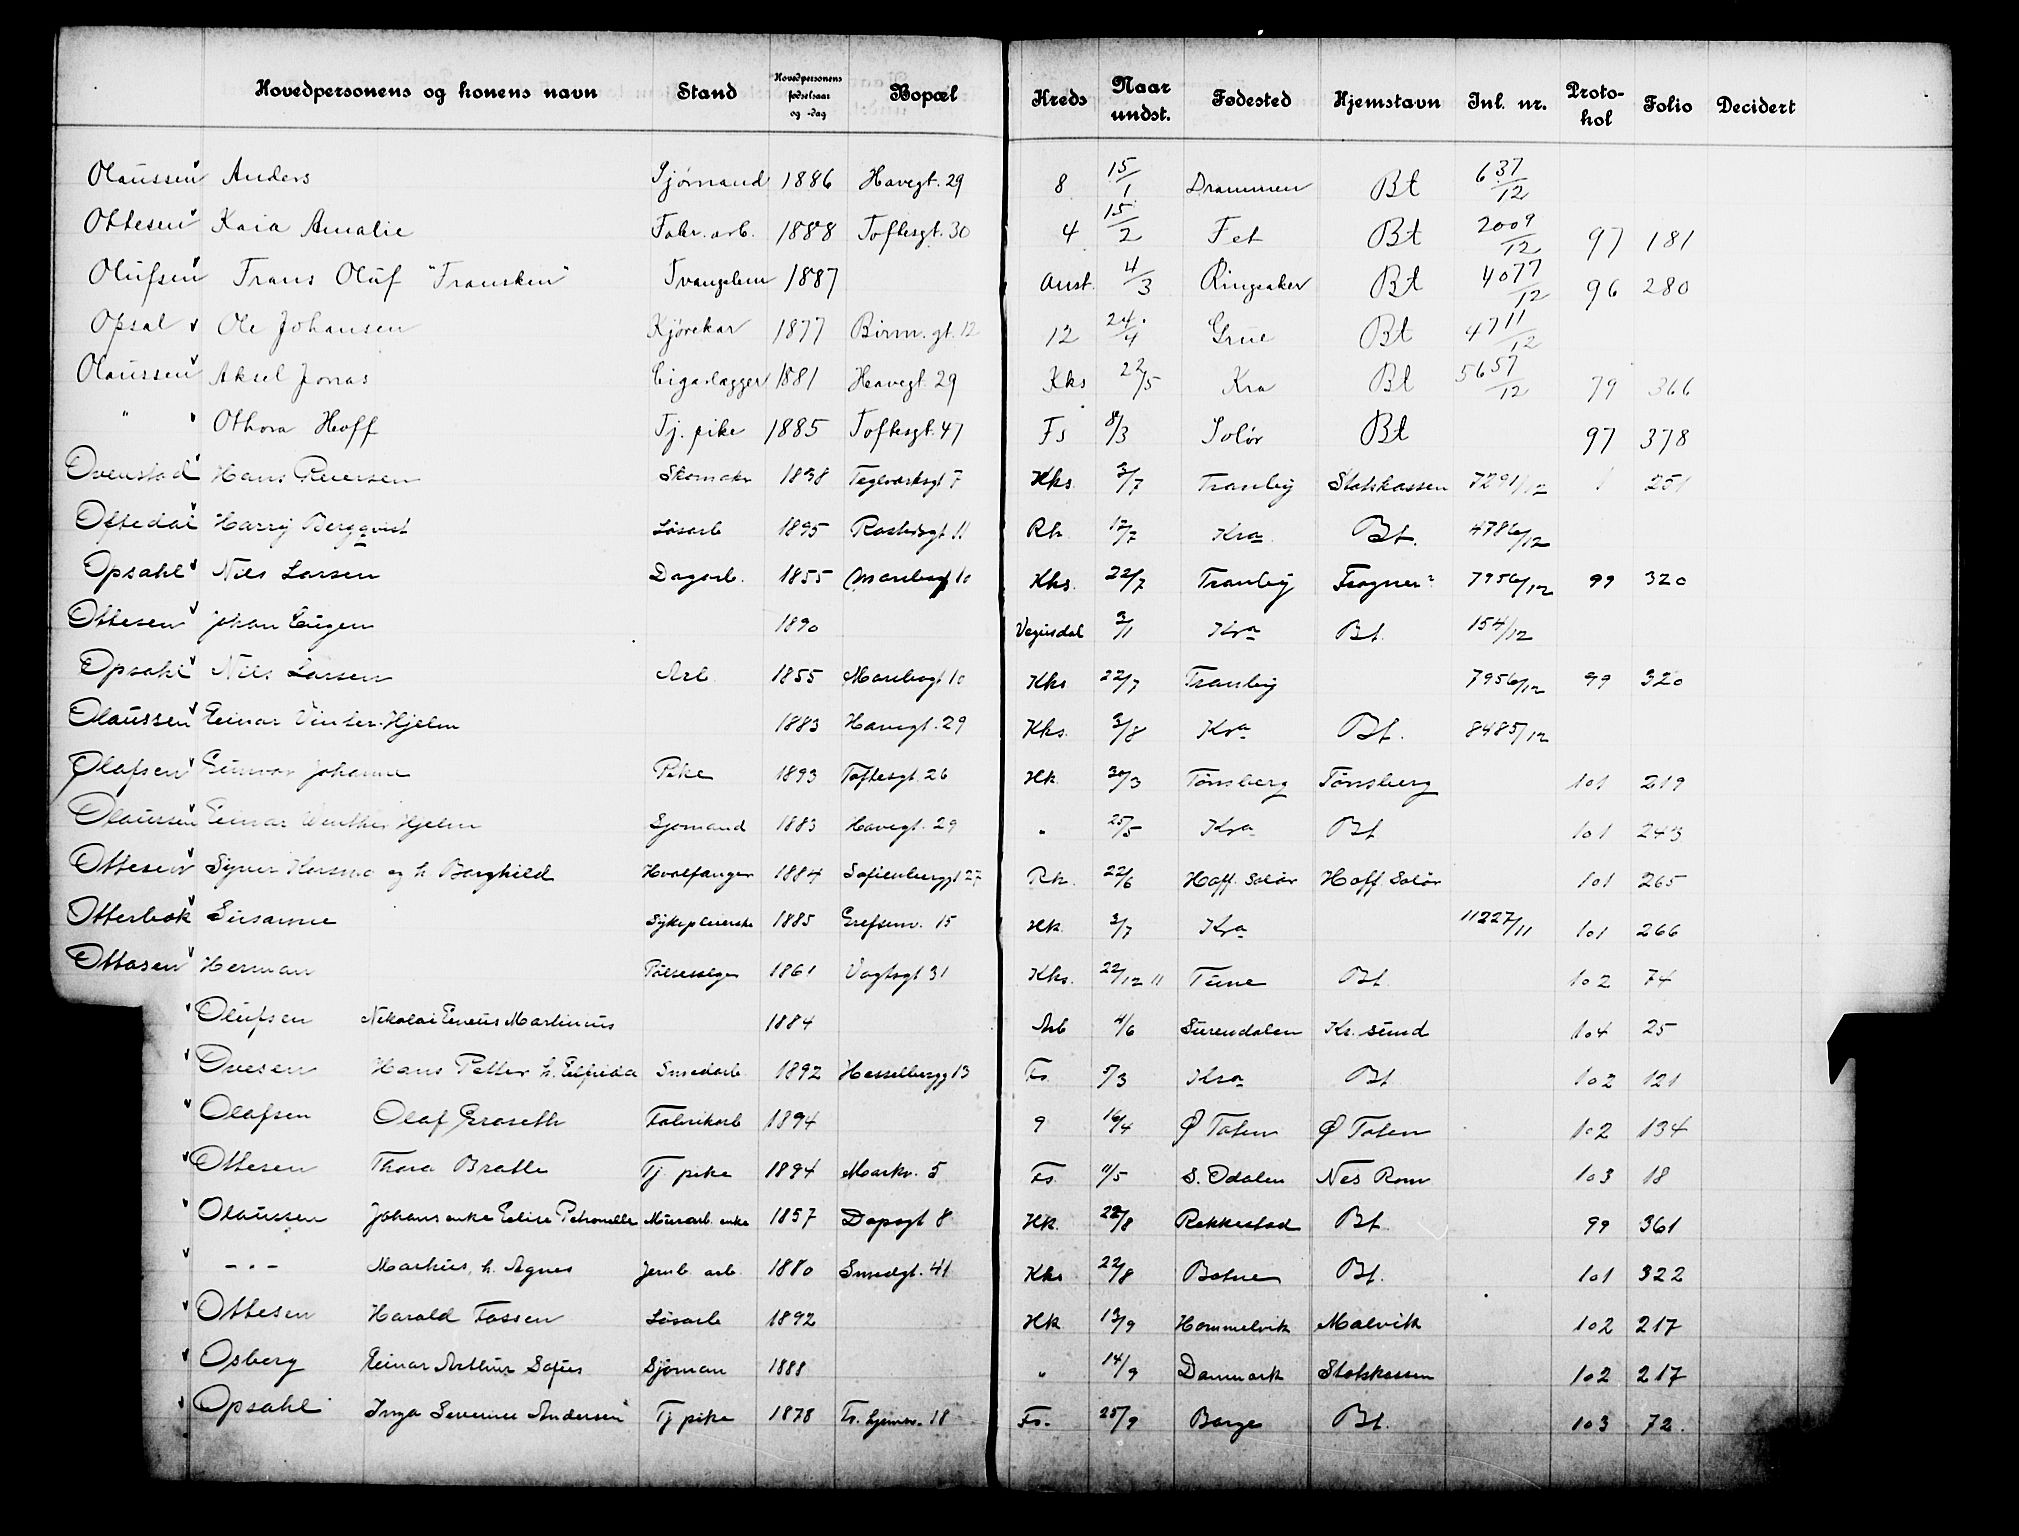 Hovedpersonens og konens navn Stand Hovedpersonens fødselsaar og -dag Bopæl Kreds Naar undst. Fødested Hjemstavn Inl. nr. Protokol Folio Decidert
Olaussen Anders Sjømand 1886 Havegt. 29 8 15/1 Drammen Bt 637/12
Ottesen Kaia Amalie Fabr. arb. 1888 Toftesgt. 30 4 15/2 Fet Bt 2009/12 97 181
Olufsen Frans Oluf "Fransken" Tvangslem 1887 Anst. 4/3 Ringsaker Bt 4077/12 96 280
Opsal Ole Johansen Kjørekar 1877 Birm. gt. 12 12 24/4 Grue Bt 4711/12
Olaussen Aksel Jonas Cigarlægger 1881 Havegt. 29 Kks 22/5 Kra Bt 5657/12 79 366
" Othora Hoff Tj. pike 1885 Toftesgt. 47 Fs 8/3 Solør Bt 97 378
Ovenstad Hans Reiersen Skomaker 1838 Teglverksgt 7 Kks. 3/7 Tranby Statskassen 7291/12 1 251
Oftedal Harry Bergqvist Løsarb 1895 Rostedsgt 11 Rk. 12/7 Kra Bt. 4786/12
Opsahl Nils Larsen Dagarb. 1855 Maribogt 10 Kks. 22/7 Tranby Frogner? 7956/12 99 320
Ottesen Johan Eugen 1890 3/11 Kra Bt. 154/12
Opsahl Nils Larsen Arb. 1855 Maribogt 10 Kks 22/7 Tranby 7956/12 99 320
Olaussen Einar Vinter-Hjelm 1883 Havegt. 29 Kks. 3/8 Kra Bt. 8485/12
Olafsen Gunvor Johanne Pike 1893 Toftesgt. 26 Hk. 30/3 Tønsberg Tønsberg 101 219
Olaussen Einar Winther Hjelm Sjømand 1883 Havegt. 29 " 25/5 Kra Bt 101 243
Ottesen Syver Korsmo og h. Borghild Hvalfanger 1884 Sofienberggt 27 Rk. 22/6 Hoff. Solør Hoff. Solør 101 265
Otterbæk Susanne Sykepleierske 1885 Grefsenv. 15 Hk. 3/7 Kra 11227/11 101 266
Ottosen Herman Pølsesælger 1861 Vogtsgt 31 Kks. 22/12 11 Tune Bt. 102 74
Olufsen Nikolai Martinius 1884 Arb 4/6 Surendalen Kr. sund 104 25
Ovesen Hans Petter h. Elfrida Smedarb. 1892 Hesselbergg 13 Fs. 5/3 Kra Bt 102 121
Olafsen Olaf Graseth Fabrikarb 1894 9 16/4 Ø Toten Ø Toten 102 134
Ottesen Thora Bratli Tj. pike 1894 Markv. 5 Fs. 11/5 S. Odalen Nes Rom 103 18
Olaussen Johans enke Elise Petronelle Murarb. enke 1857 Dopsgt 8 Hk. 22/8 Rakkestad Bt. 99 361
- " - Markus, h. Agnes Jernb. arb. 1880 Smedgt. 41 Kks 22/8 Botne Bt. 101 322
Ottesen Harald Fossen Løsarb 1892 Hk 13/9 Hommelvik Malvik 102 217
Osberg Einar Arthur Sofus Sjøman 1888 " 14/9 Danmark Statskassen 102 217
Opsahl Inga Severine Andersen Tj pike 1878 18 Fs. 25/9 Borge Bt. 103 72.